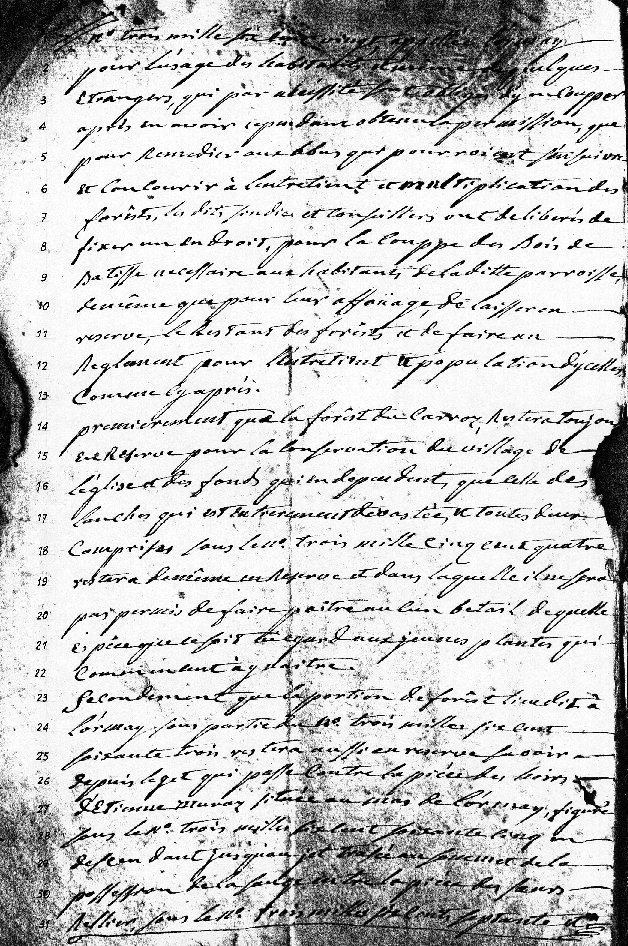 N.º trois mille six
pour l'usage des habitants quelques
3 Etrangers, qui par necessité d'y en Coupper
4 apres en avoir cependant obtenu la permission, que
5 pour Remedier aux abus qui pourroient s'en suivre
6 et Concourir à l'entretient et multiplication des
7 forêsts, les dits sindics et Conseillers ont deliberés de
8 fixer un endroit, pour la Couppe des Bois de
9 Batisse necessaire aux habitants de la ditte parroisse,
10 de même que pour leur affoüage, de laisser en
11 reserve, le Restant des forêsts et de faire un
12 Reglament pour l'entretient et population d'ycelles
13 Comme cy après.
14 premierement que la forêst du Carroz, Restera toujou
15 en Reserve pour la Conservation du village de
16 l'église et des fonds qui en dependent, que celle des
17 Couches qui est entierement devastée, et toutes deux
18 Comprises sous le n.º trois mille Cinq cent quatre
19 restera de même en Reserve et dans laquelle il ne sera
20 pas permis de faire paître aucun betail de quelle
21 Espéce que ce soit eu egard aux jeunes plantes qui
22 Commencent à y naitre.
23 Secondement que la portion de forêst lieu dit à
24 l'ormay, sous partie du N.º trois milles six cent
25 soixante trois restera aussi en reserve savoir
26 depuis le get qui passe Contre la piéce des hoirs
27 d'Etienne Muraz située au mas de l'ormay, figuré
28 sous le N.º trois milles six cent soixante cinq en
29 descendant jusqu'au sommet de la
30 possession de la entre la piece des sieurs
31 sous le N.º trois milles six cents septante et